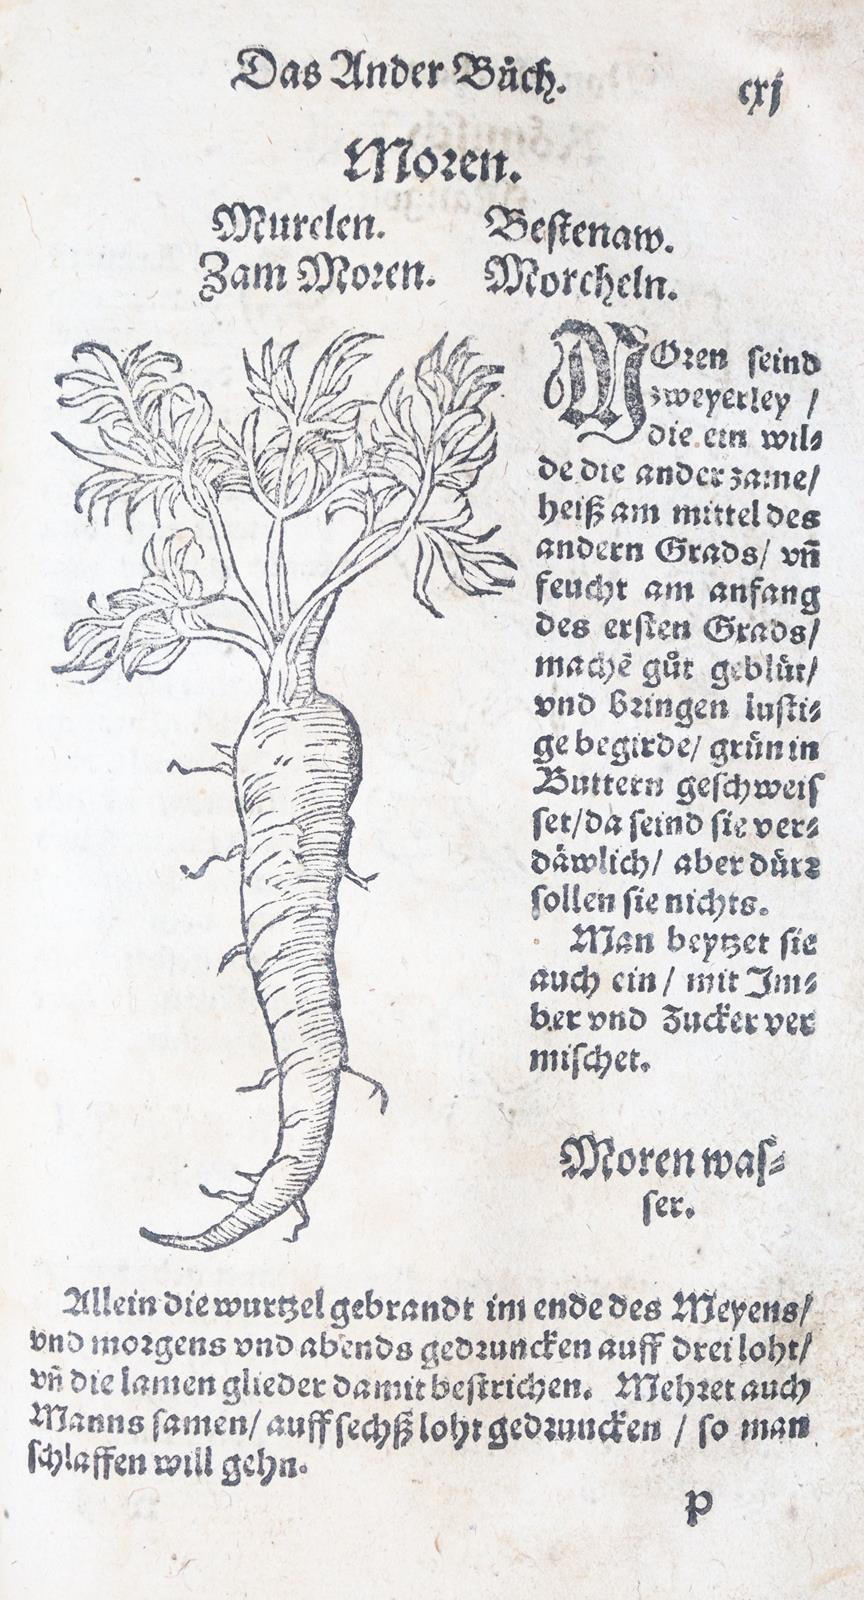 Das Ander Bůch. cxj
Moren.
Murelen. Bestenaw.
Zam Moren. Morcheln.
MOren seind
zweyerley /
die ein wil⸗
de die ander zame/
heiß am mittel des
andern Grads/ vñ
feucht am anfang
des ersten Grads/
machē gůt geblüt/
vnd bringen lusti⸗
ge begirde/ grün in
Buttern geschweis
set/da seind sie ver⸗
däwlich/ aber dürr
sollen sie nichts.
Man beytzet sie
auch ein / mit Im⸗
ber vnd Zucker ver
mischet.
Moren was⸗
ser.
Allein die wurtzel gebrandt im ende des Meyens/
vnd morgens vnd abends gedruncken auff drei loht/
vñ die lamen glieder damit bestrichen. Mehret auch
Manns samen/ auff sechß loht gedruncken / so man
schlaffen will gehn.
p